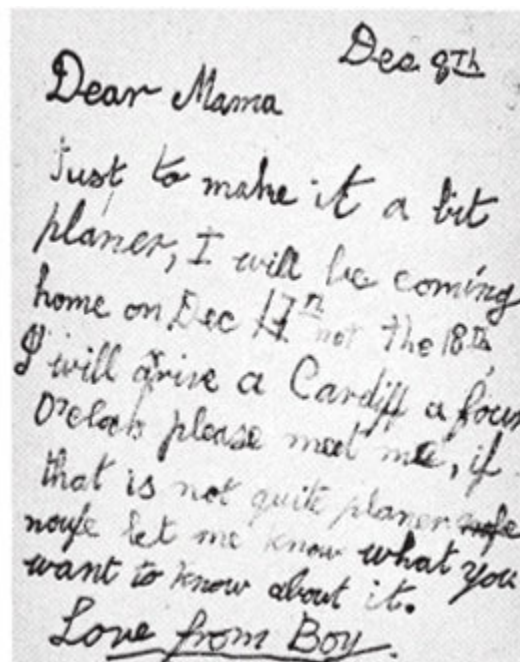 Dec. 8th
Dear Mama
Just to make it a bit
planer, I will be coming
home on Dec 17th not the 18th,
I will arive a Cardiff a four
O'clock please meet me, if
that is not quite planer
noufe let me know what you
want to know about it.
Love from Boy.